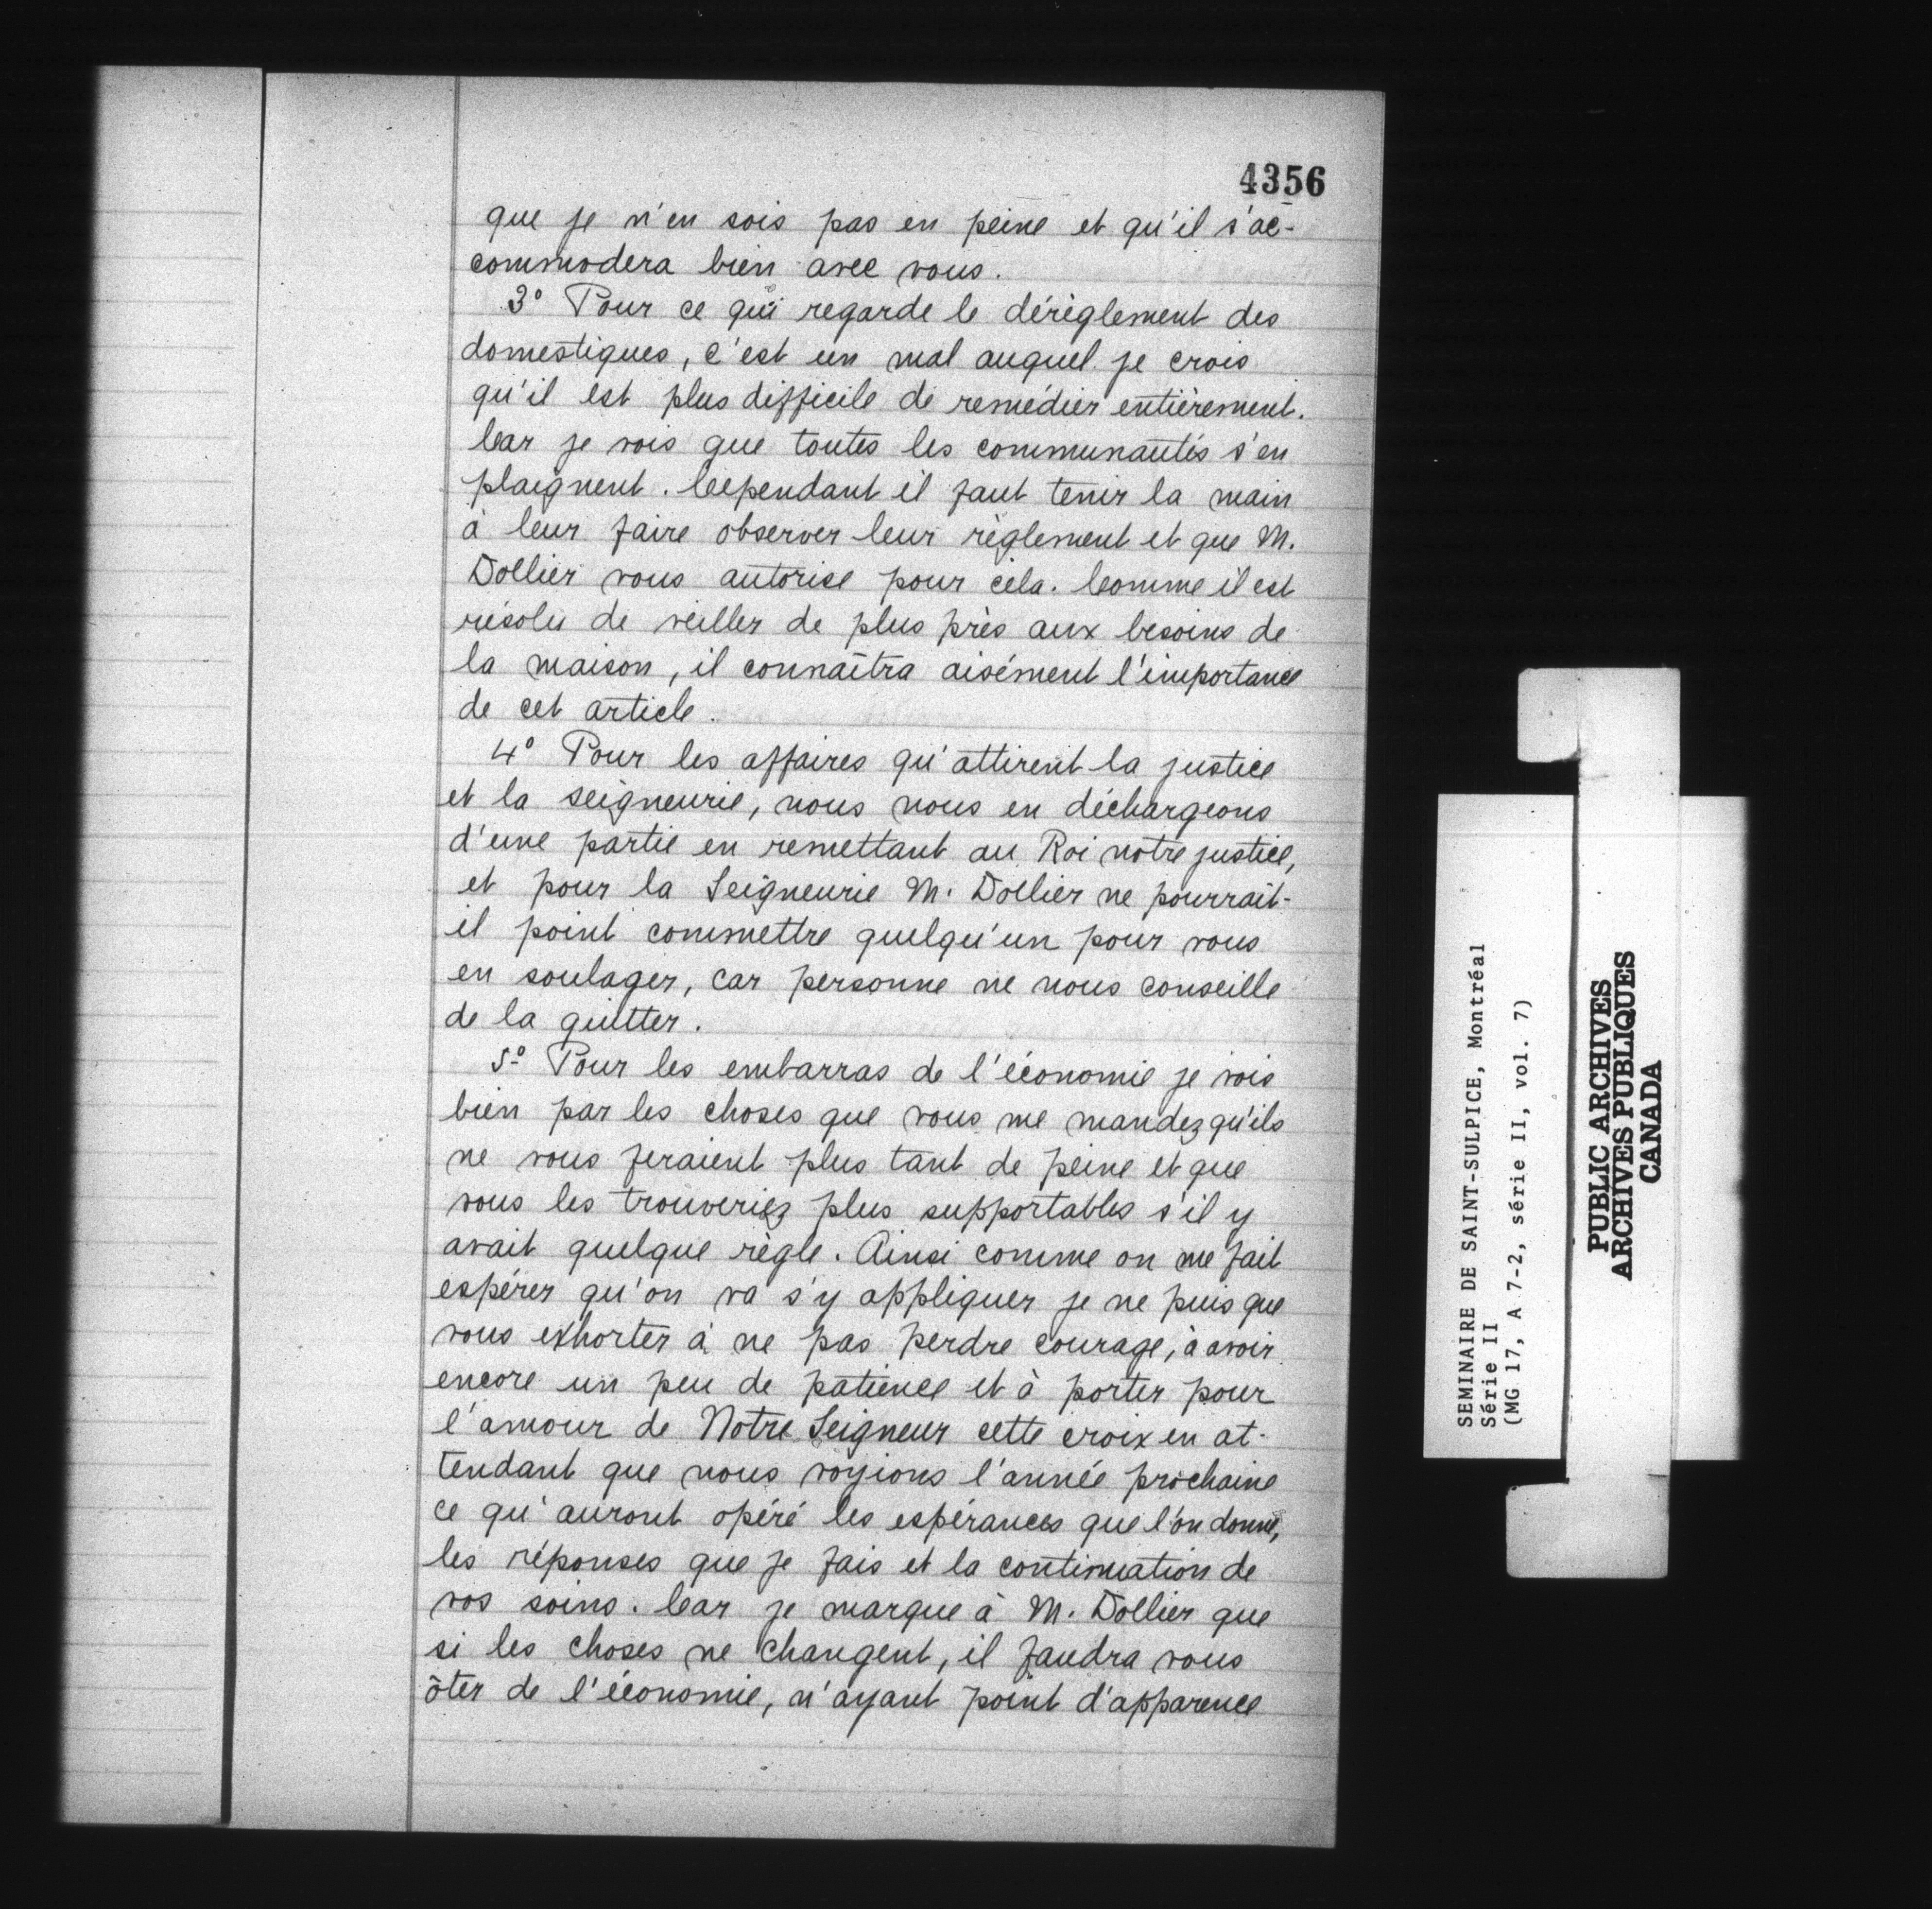 4356
que je n'en sois pas en peine et qu'il s'ac-
commodera bien avec vous.
3° Pour ce qui regarde le dérèglement des
domestiques, c'est un mal auquel je crois
qu'il est plus difficile de remédier entièrement.
Car je vois que toutes les communautés s'en
plaignent. Cependant il faut tenir la main
à leur faire observer leur règlement et que M.
Dollier vous autorise pour cela. Comme il est
résolu de veiller de plus près aux besoins de
la maison, il connaîtra aisément l'importance
de cet article.
4° Pour les affaires qu'attirent la justice
et la seigneurie, nous nous en déchargeons
d'une partie en remettant au Roi notre justice,
et pour la Seigneurie M. Dollier ne pourrait-
il point commettre quelqu'un pour vous
en soulager, car personne ne nous conseille
de la quitter.
5° Pour les embarras de l'économie je vois
bien par les choses que vous me mandez qu'ils
ne vous feraient plus tant de peine et que
vous les trouveriez plus supportables s'il y
avait quelque règle. Ainsi comme on me fait
espérer qu'on va s'y appliquer je ne puis que
vous exhorter à ne pas perdre courage, à avoir
encore un peu de patience et à porter pour
l'amour de Notre Seigneur cette croix en at-
tendant que nous voyions l'année prochaine
ce qu'auront opéré les espérances que l'on donne,
les réponses que je fais et la continuation de
vos soins. Car je marque à M. Dollier que
si les choses ne changent, il faudra vous
ôter de l'économie, n'ayant point d'apparence
SEMINAIRE DE SAINT-SULPICE, Montréal
Série II
(MG 17, A 7-2, série II, vol. 7)
PUBLIC ARCHIVES
ARCHIVES PUBLIQUES
CANADA